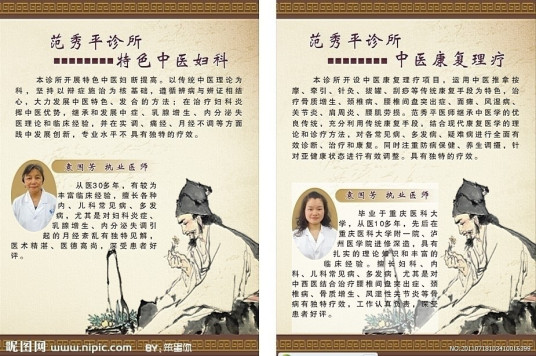 范秀平诊所
特色中医妇科
本诊所开展特色中医妇断提高。以传统中医理论为科
，坚持以辩症施治为核基础，遵循辨病与辨证相结
心，大力发展中医特色、发合的方法；在治疗妇科炎
挥中医优势，继承和发展中症、乳腺增生、内分泌失
医理论和临床经验，并在实调、痛经、月经不调等方面
践中发展创新，专业水平不具有独特的疗效。
袁国芳 执业医师
从医30多年，有较为
丰富临床经验，擅长各种
内、儿科常见病、多发
病，尤其是对妇科炎症、
乳腺增生、内分泌失调引
起的月经紊乱有独特见解，
医术精湛、医德高尚，深受患者好
评。
昵图网 www.nipic.com BY:笨蛋你
范秀平诊所
中医康复理疗
本诊所开设中医康复理疗项目，运用中医推拿按
摩、牵引、针灸、拔罐、刮痧等传统康复手段为特色，治
疗骨质增生、颈椎病、腰椎间盘突出症、面瘫、风湿病、
关节炎、肩周炎、腰肌劳损。范秀平医师继承中医学的优
良传统，充分利用传统康复手段，结合现代康复医学的理
论和诊疗方法，对各常见病、多发病、疑难病进行全面有
效诊断、治疗和康复。同时注重防病保健、养生调摄，针
对亚健康状态进行有效调整。具有独特的疗效。
袁国芳 执业医师
毕业于重庆医科大
学，从医10多年，先后在
重庆医科大学附一院、泸
州医学院进修深造，具有
扎实的理论知识和丰富的
临床经验。擅长妇科、内
科、儿科常见病、多发病，尤其是对
中西医结合治疗腰椎间盘突出症、颈
椎病、骨质增生、风湿性关节炎等骨
病有独特疗效，工作认真负责，深受
患者好评。